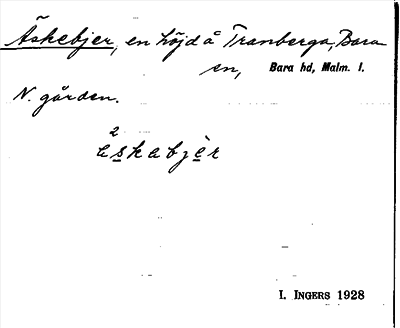 Äskebjer, en höjd å Tranberga, Bara
en, Bara hd, Malm. l.
N. gården.
2
əskabjèr
I. INGERS 1928